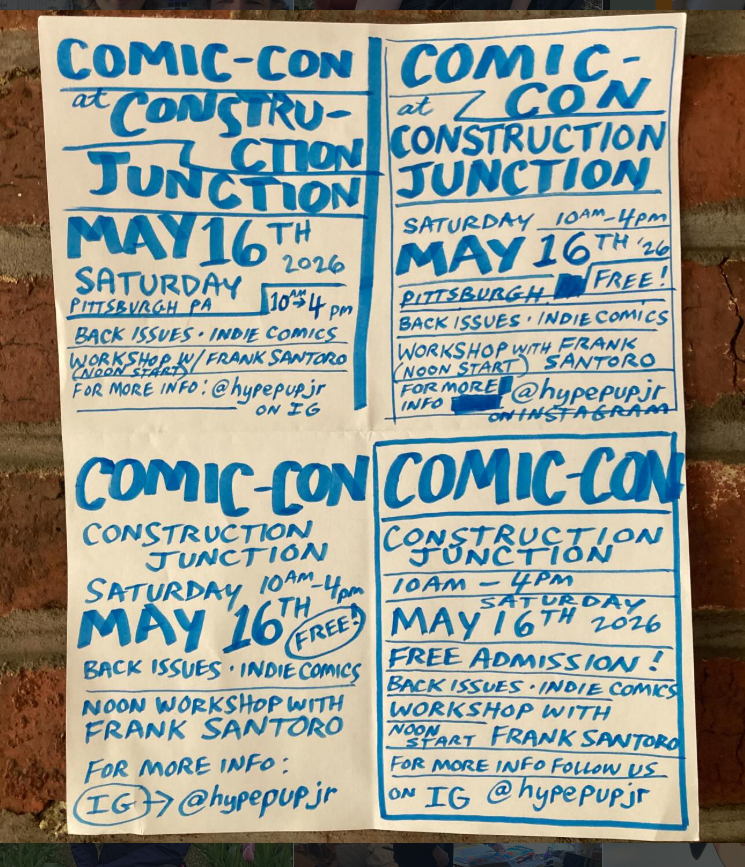 COMIC-CON
at CONSTRU-
CTION
JUNCTION
MAY 16TH
2026
SATURDAY
PITTSBURGH PA
10AM→4PM
BACK ISSUES · INDIE COMICS
WORKSHOP W/ FRANK SANTORO
(NOON START)
FOR MORE INFO: @hypepupjr
ON IG
COMIC-
at CON
CONSTRUCTION
JUNCTION
SATURDAY 10AM-4PM
MAY 16TH '26
PITTSBURGH FREE!
BACK ISSUES · INDIE COMICS
WORKSHOP WITH FRANK
(NOON START) SANTORO
FOR MORE
INFO @hypepupjr
ON INSTAGRAM
COMIC-CON
CONSTRUCTION
JUNCTION
SATURDAY 10AM-4PM
MAY 16TH
FREE!
BACK ISSUES · INDIE COMICS
NOON WORKSHOP WITH
FRANK SANTORO
FOR MORE INFO:
IG → @hypepupjr
COMIC-CON
CONSTRUCTION
JUNCTION
10AM - 4PM
SATURDAY
MAY 16TH 2026
FREE ADMISSION!
BACK ISSUES · INDIE COMICS
WORKSHOP WITH
NOON
START FRANK SANTORO
FOR MORE INFO FOLLOW US
ON IG @hypepupjr